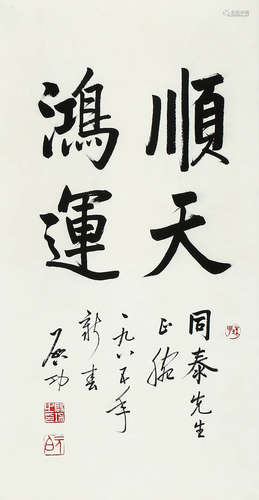 順天
鴻運
同泰先生
正腕
一九八六年
新春
启功